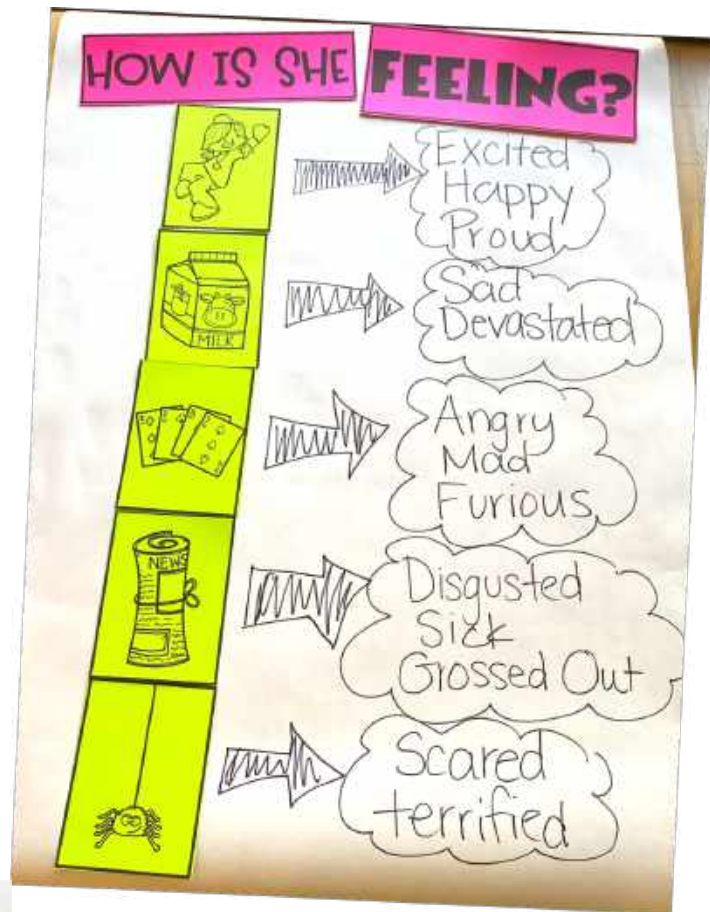 HOW IS SHE FEELING?
Excited
Happy
Proud
MILK
Sad
Devastated
Angry
Mad
Furious
NEWS
Disgusted
Sick
Grossed Out
Scared
terrified